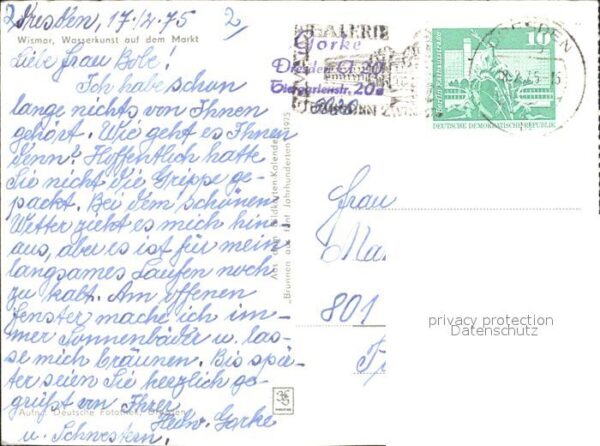 Dresden, 17./2.75 2/
Wismar, Wasserkunst auf dem Markt
Liebe Frau Bobe!
Ich habe schon
lange nichts von Ihnen
gehört. Wie geht es Ihnen
denn? Hoffentlich hatte
Sie nicht die Grippe ge-
packt. Bei dem schönen
Wetter zieht es mich hin
aus, aber es ist für mein
langsames Laufen noch
zu kalt. Am offenen
Fenster mache ich im-
mer Sonnenbäder u. las-
se mich bräunen. Bis spä-
ter seien Sie herzlich ge-
grüßt von Ihrer
Hedw. Gorke
u. Schwestern.
Aufn.: Deutsche Fotothek, Dresden
Aus dem Bildkarten-Kalender 1975
„Brunnen aus fünf Jahrhunderten"
GALERIE
Gorke
Dresden A 20
Tiergartenstr. 20
8020
DRESDEN
10
DEUTSCHE DEMOKRATISCHE REPUBLIK
Frau
801
privacy protection
Datenschutz